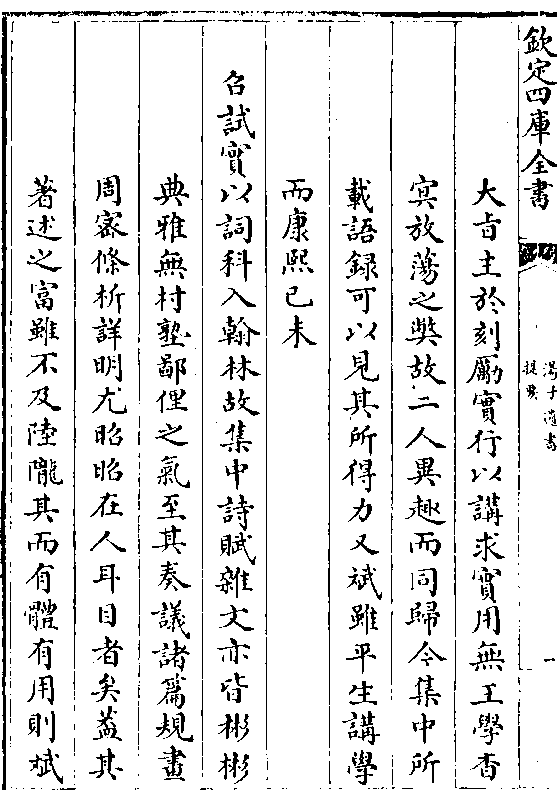 欽定四庫全書
湯子遺書
提要
一
大旨主於刻厲實行以講求實用無王學杳
冥放蕩之弊故二人異趣而同歸今集中所
載語録可以見其所得力又斌雖平生講學
而康熙己未
召試實以詞科入翰林故集中詩賦雜文亦皆彬彬
典雅無村塾鄙俚之氣至其奏議諸篇規畫
周宻條析詳明尤昭昭在人耳目者矣葢其
著述之富雖不及陸隴其而有體有用則斌